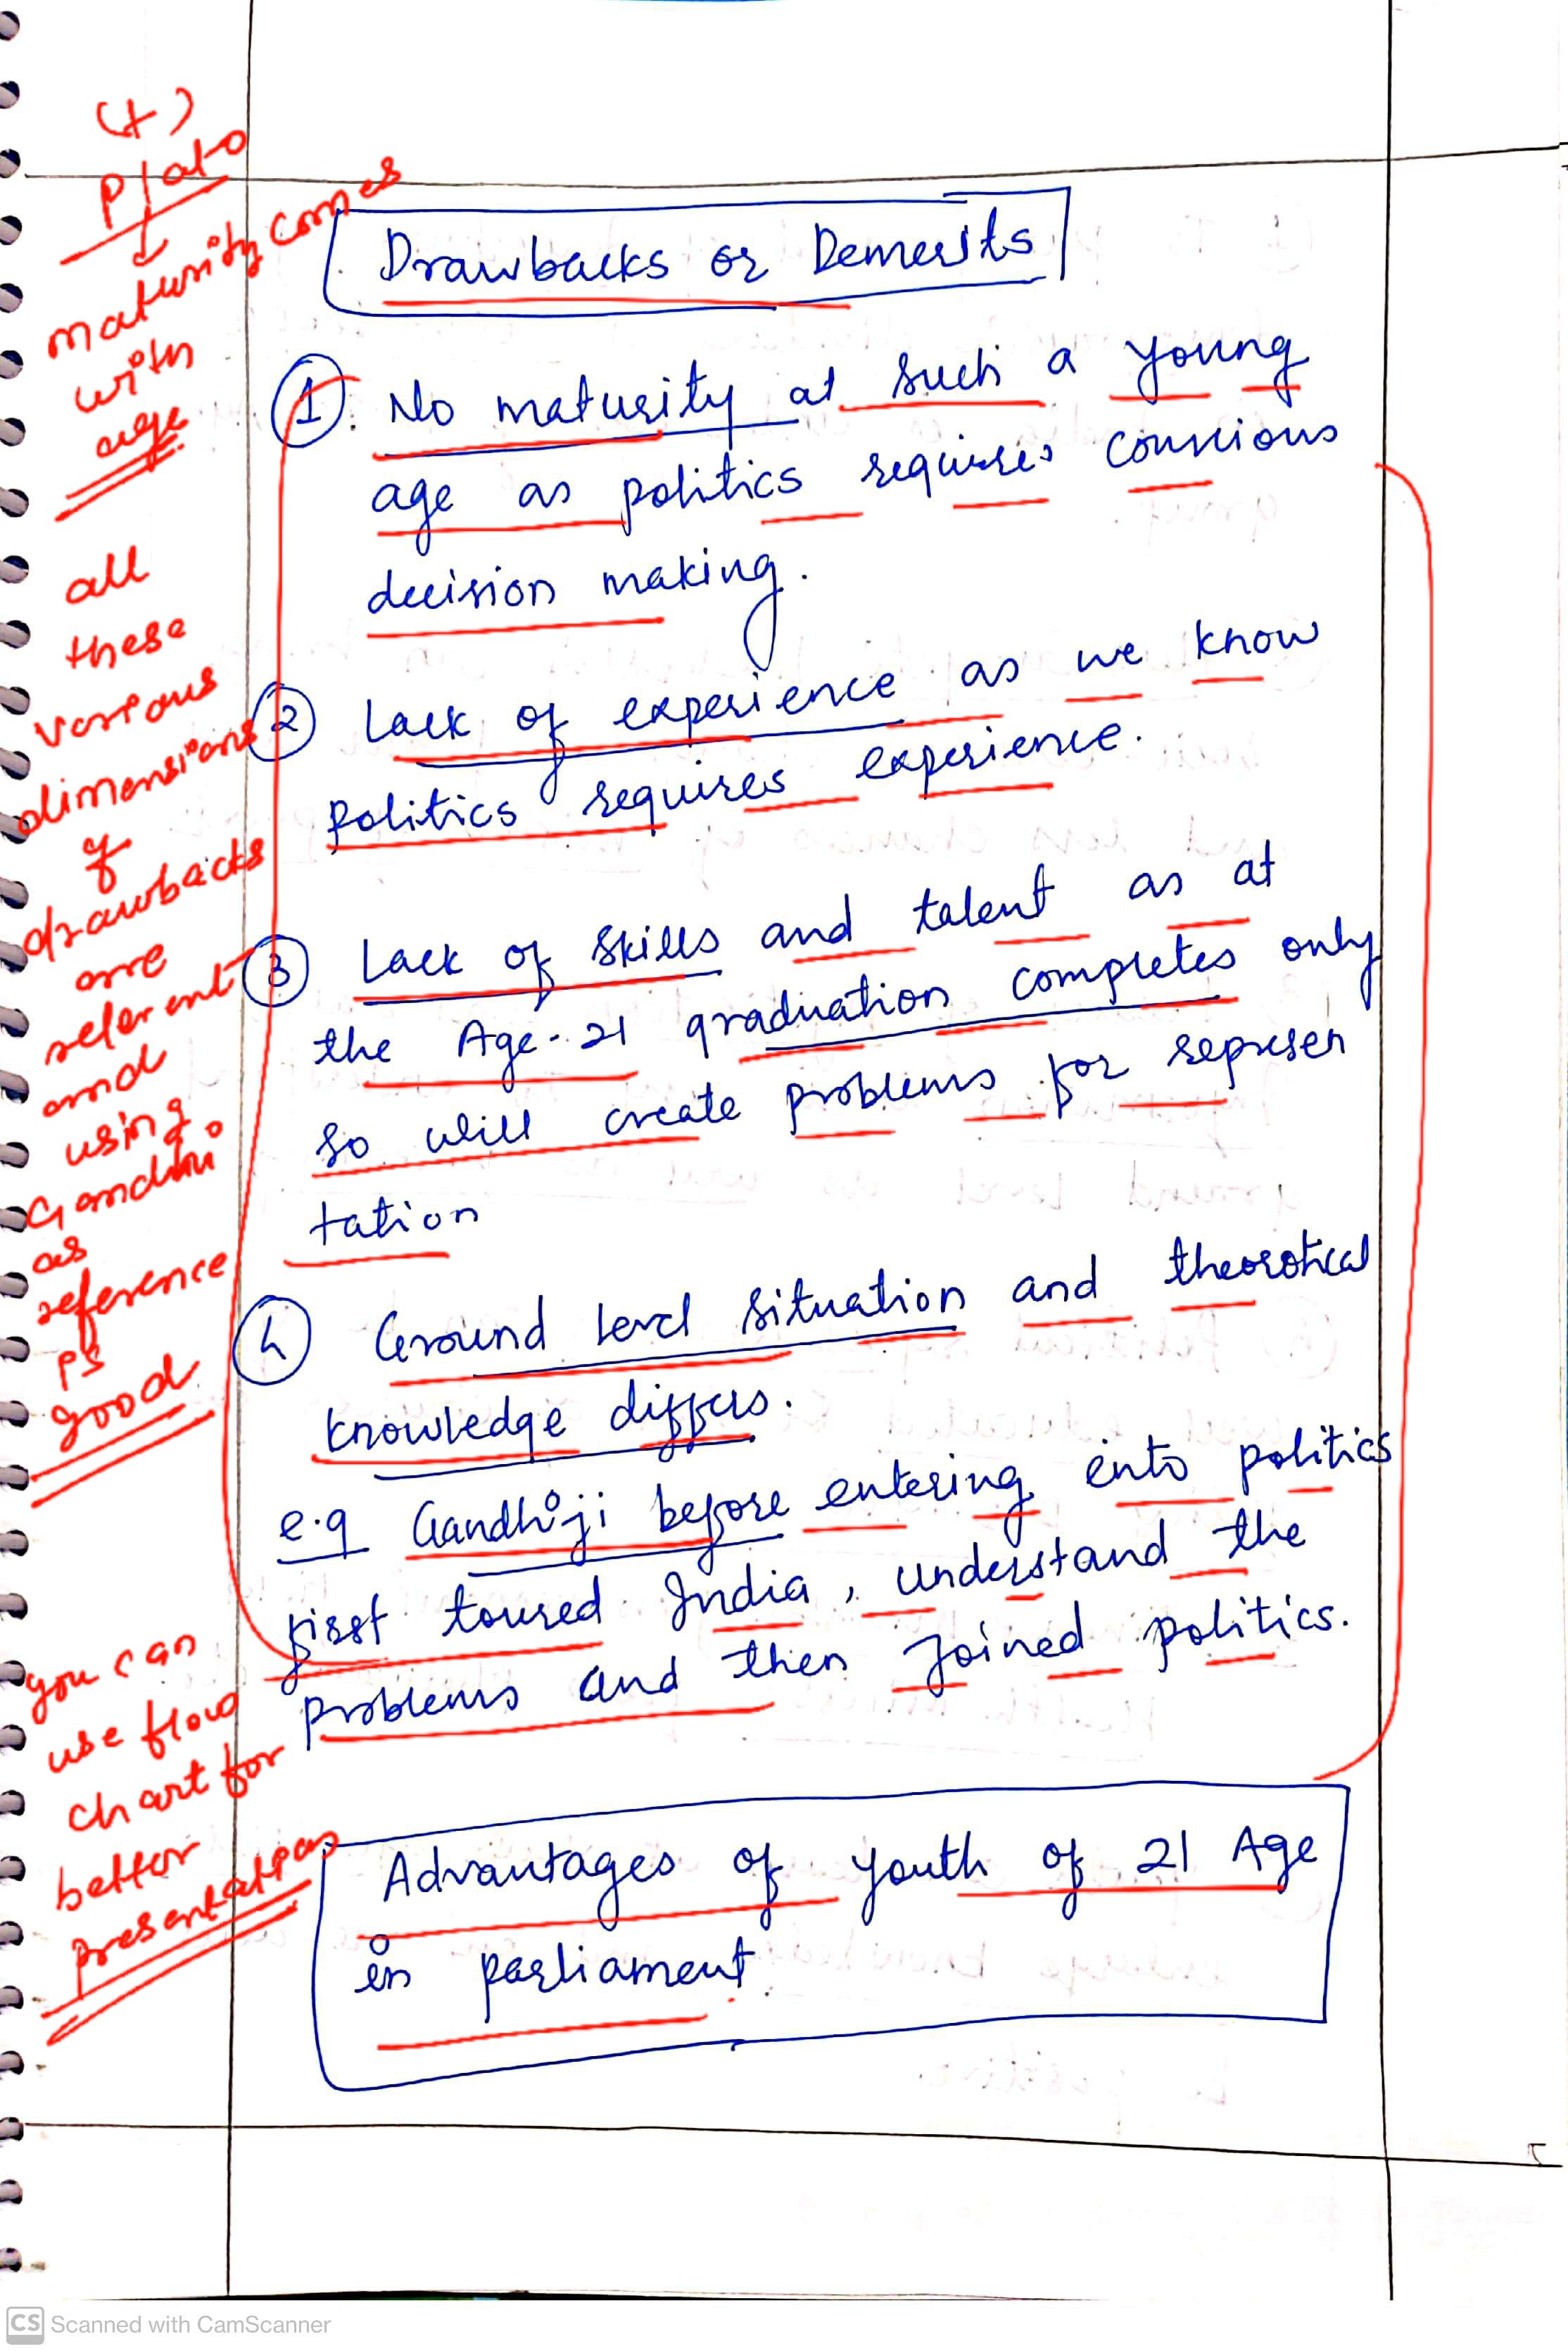 (+)
Plato
maturity comes
with
age
Drawbacks or Demerits
1. No maturity at such a young
age as politics requires conscious
decision making.
2 Lack of experience as we know
politics requires experience.
3 Lack of skills and talent as at
the Age-21 graduation completes only
so will create problems for represen
tation
4 Ground level situation and theorotical
knowledge differs.
e.g Gandhiji before entering into politics
first toured India, understand the
problems and then Joined politics.
all
these
various
dimensions
of
drawbacks
are
relerent
and
using
Gandhi
as
reference
is
good
you can
use flow
chart for
better
presentation
Advantages of youth of 21 Age
in parliament
CS Scanned with CamScanner